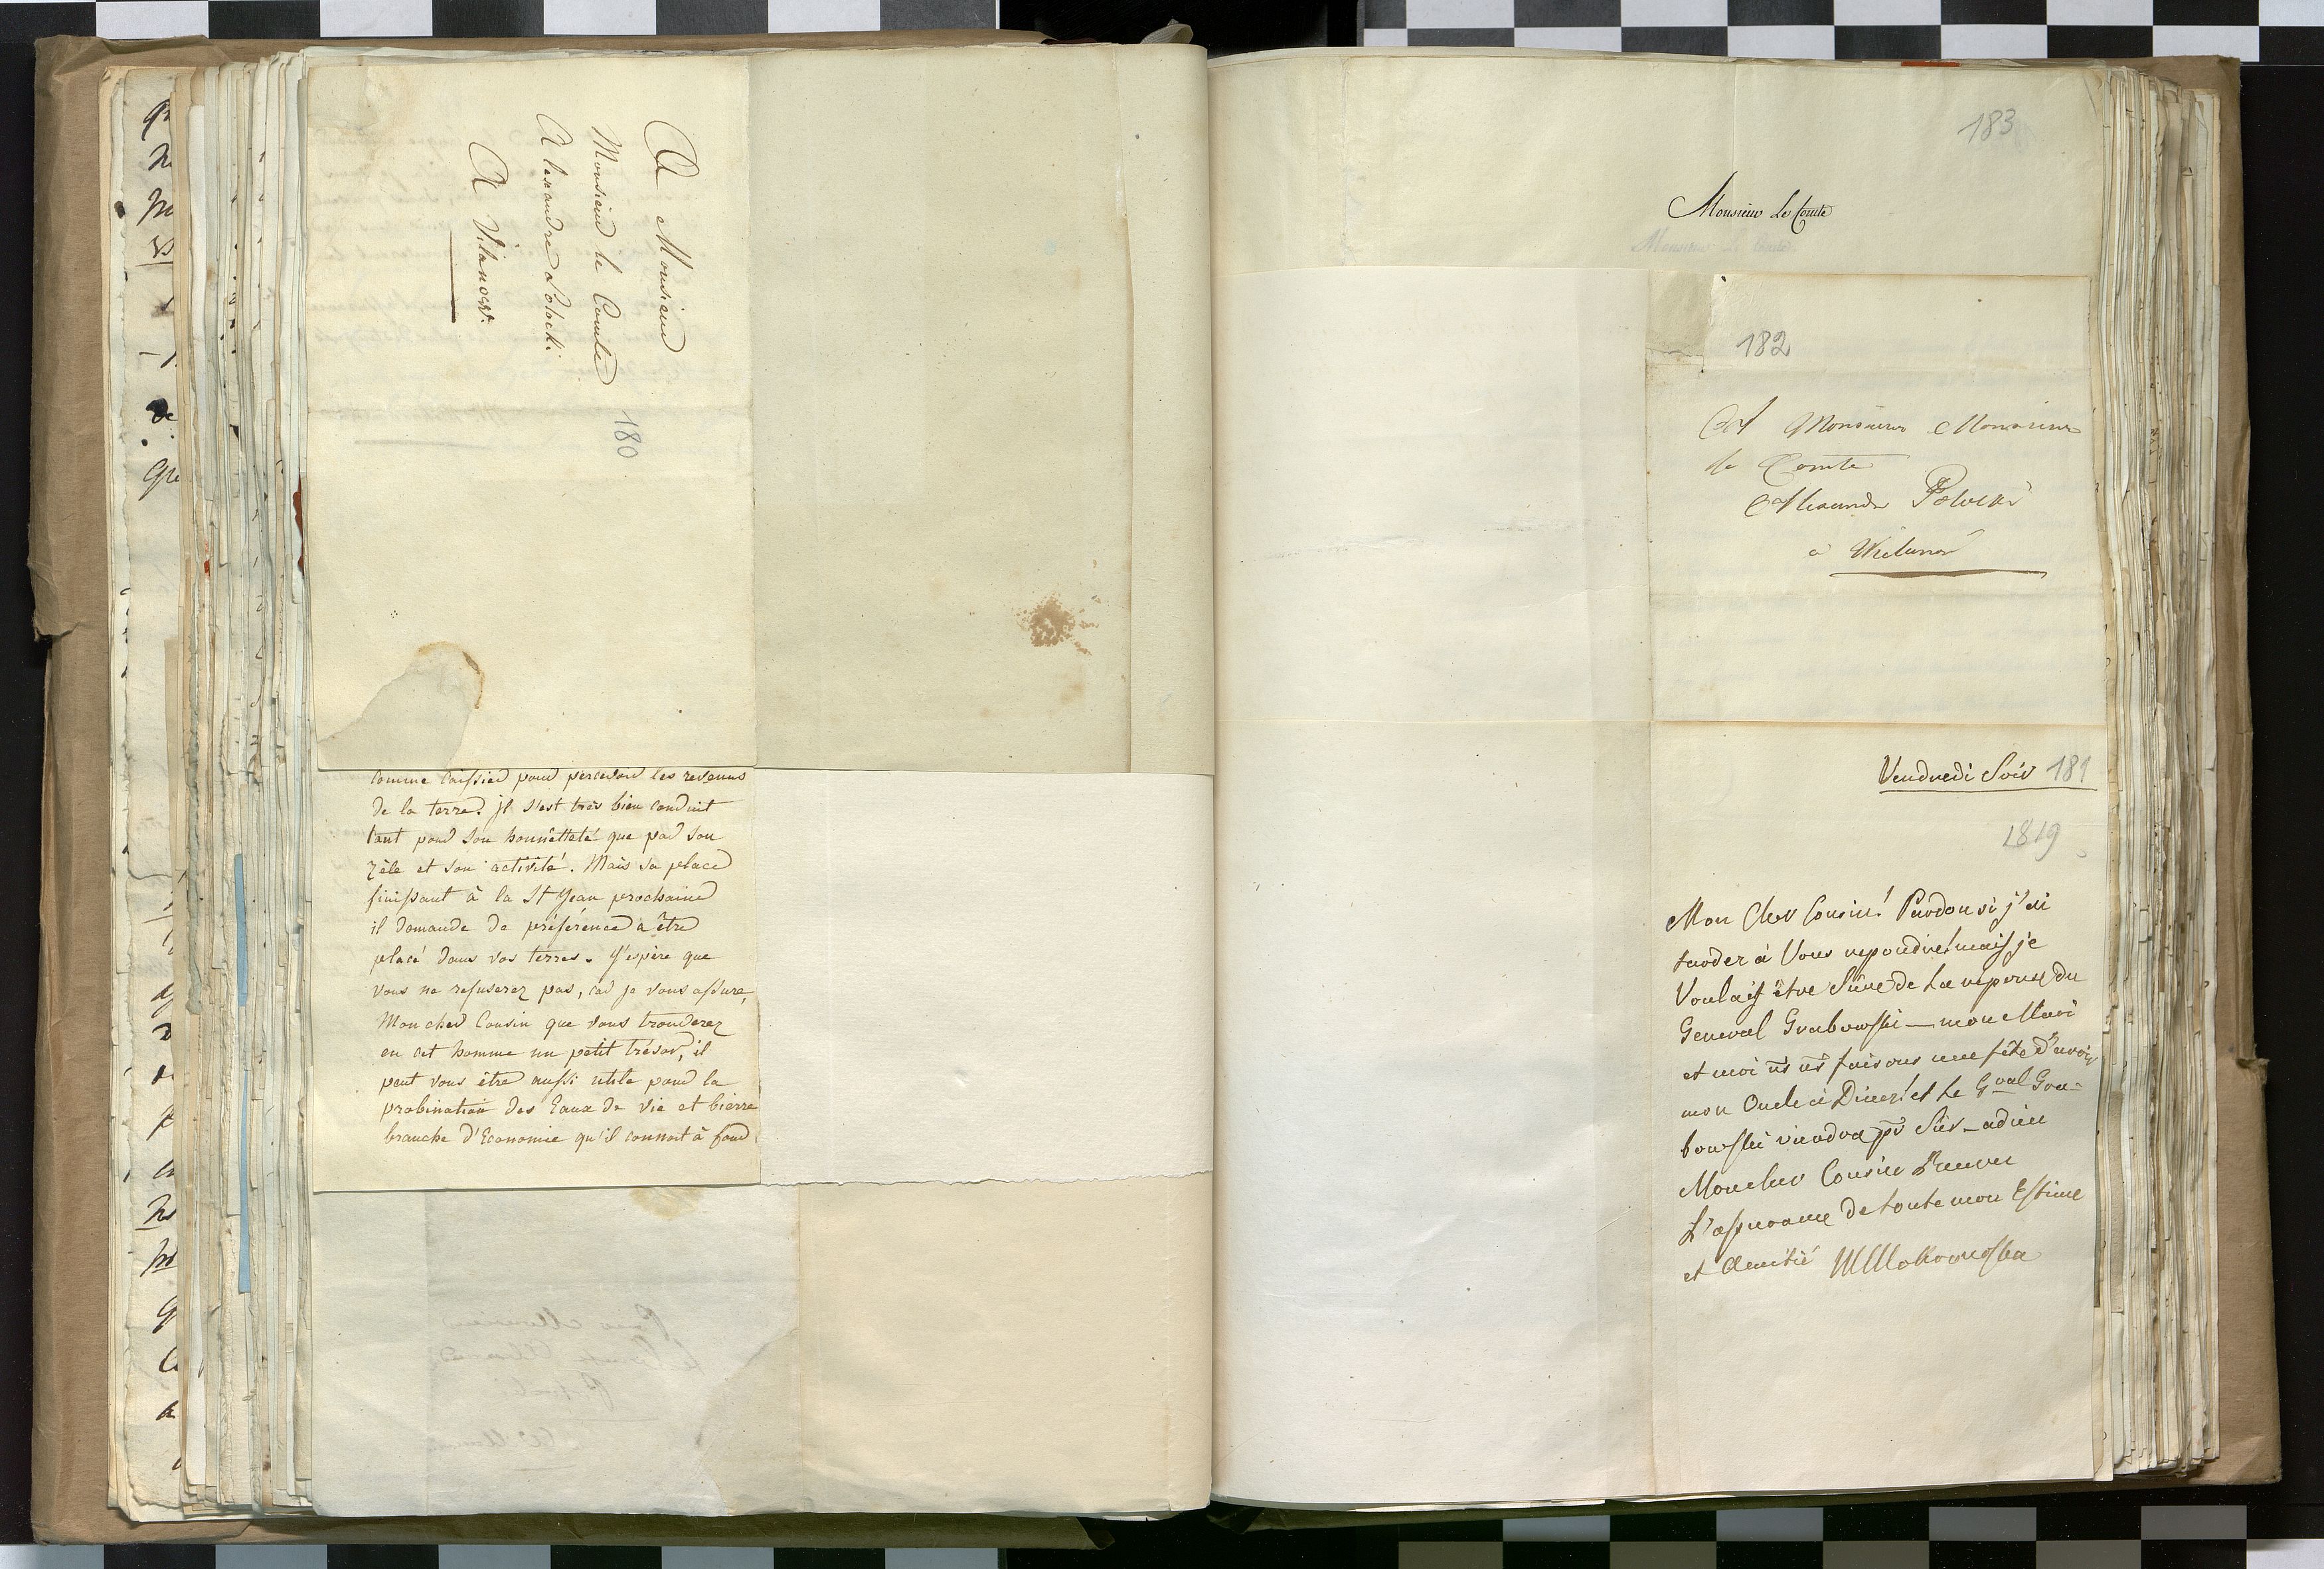 A Monsieur
Monsieur le Comte
Alexandre Potocki
A Vilanow.
180
comme Caissier pour percevoir les revenus
de la terre. Il s'est très bien conduit
tant pour son honnêtteté que par son
zèle et son activité. Mais sa place
finissant à la St Jean prochaine
il demande de préférence à être
placé dans vos terres. J'espère que
vous ne refuserez pas, car je vous assure,
Mon cher Cousin que vous trouverez
en cet homme un petit trésor, il
peut vous être aussi utile pour la
probination des Eaux de vie et bierre
branche d'Economie qu'il connoit à fond
183
Monsieur Le Comte
182
A Monsieur Monsieur
le Comte
Alexandre Potocki
à
Vendredi Soir 181
1819
Mon Cher Cousin! Pardon si j'ai
tarder à Vous repondre! mais je
Voulais être Sûre de La reponse du
General Grabowski — mon Mari
et moi ns ns faisons une fête d'avoir
mon Oncle à Diner! et Le Gral Gra=
bowski viendra pr Sûr — adieu
Mon cher Cousin
L'assurance de toute mon Estime
et Amitié MMokronoska